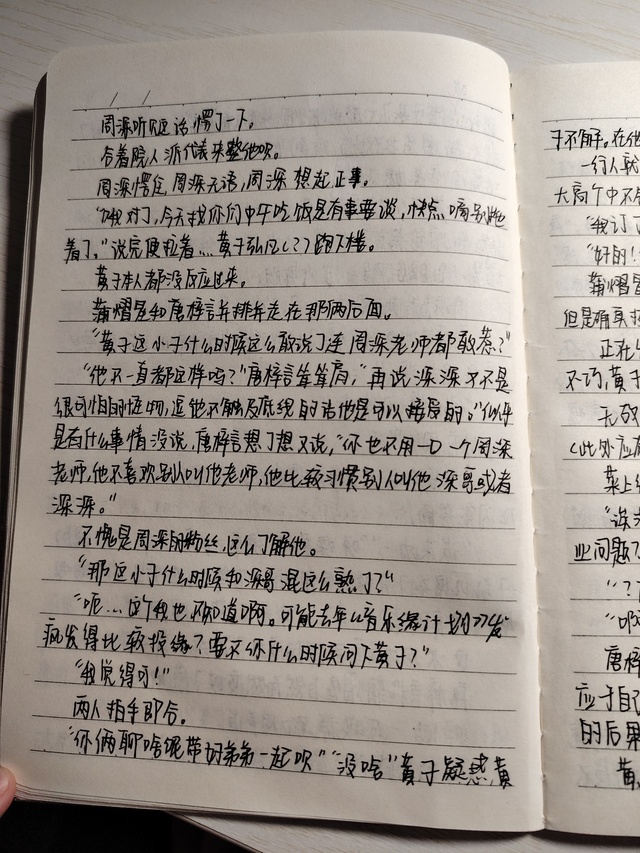 周深听见这话愣了一下。
合着院人派代表来整他呗。
周深愣住,周深无语,周深想起正事。
"哦对了,今天找你们中午吃饭是有事要谈,快点,嘀别愣
着了。"说完便拉着…黄子弘凡(?)跑下楼。
黄子本人都没反应过来。
蒲熠星和唐梓言并排并走在那两后面。
"黄子这小子什么时候这么敢说了连周深老师都敢惹?"
"他不一直都这样吗?"唐梓言耸耸肩,"再说,深深又不是
很可怕的怪物,逗他不触及底线的话他是可以接受的。"似乎
是有什么事情没说,唐梓言想了想又说,"你也不用一口一个周深
老师,他不喜欢别人叫他老师,他比较习惯别人叫他深哥或者
深深。"
不愧是周深的粉丝,这么了解他。
"那这小子什么时候和深哥混这么熟了?"
"呃…这我也不知道啊。可能去年《音乐缘计划》发
疯发得比较投缘?要不你什么时候问下黄子?"
"我觉得可!"
两人拍手即合。
"你俩聊啥呢带好弟弟一起呗""没啥"黄子疑惑黄
子不解。在他
一行人就
大高个中不
"我订了
"好的!
蒲熠星
但是确实
正在
不巧,黄子
无敌
(此处应
菜上
"深
业问题
"?
"啊
唐梓
应于自己
的后果
黄